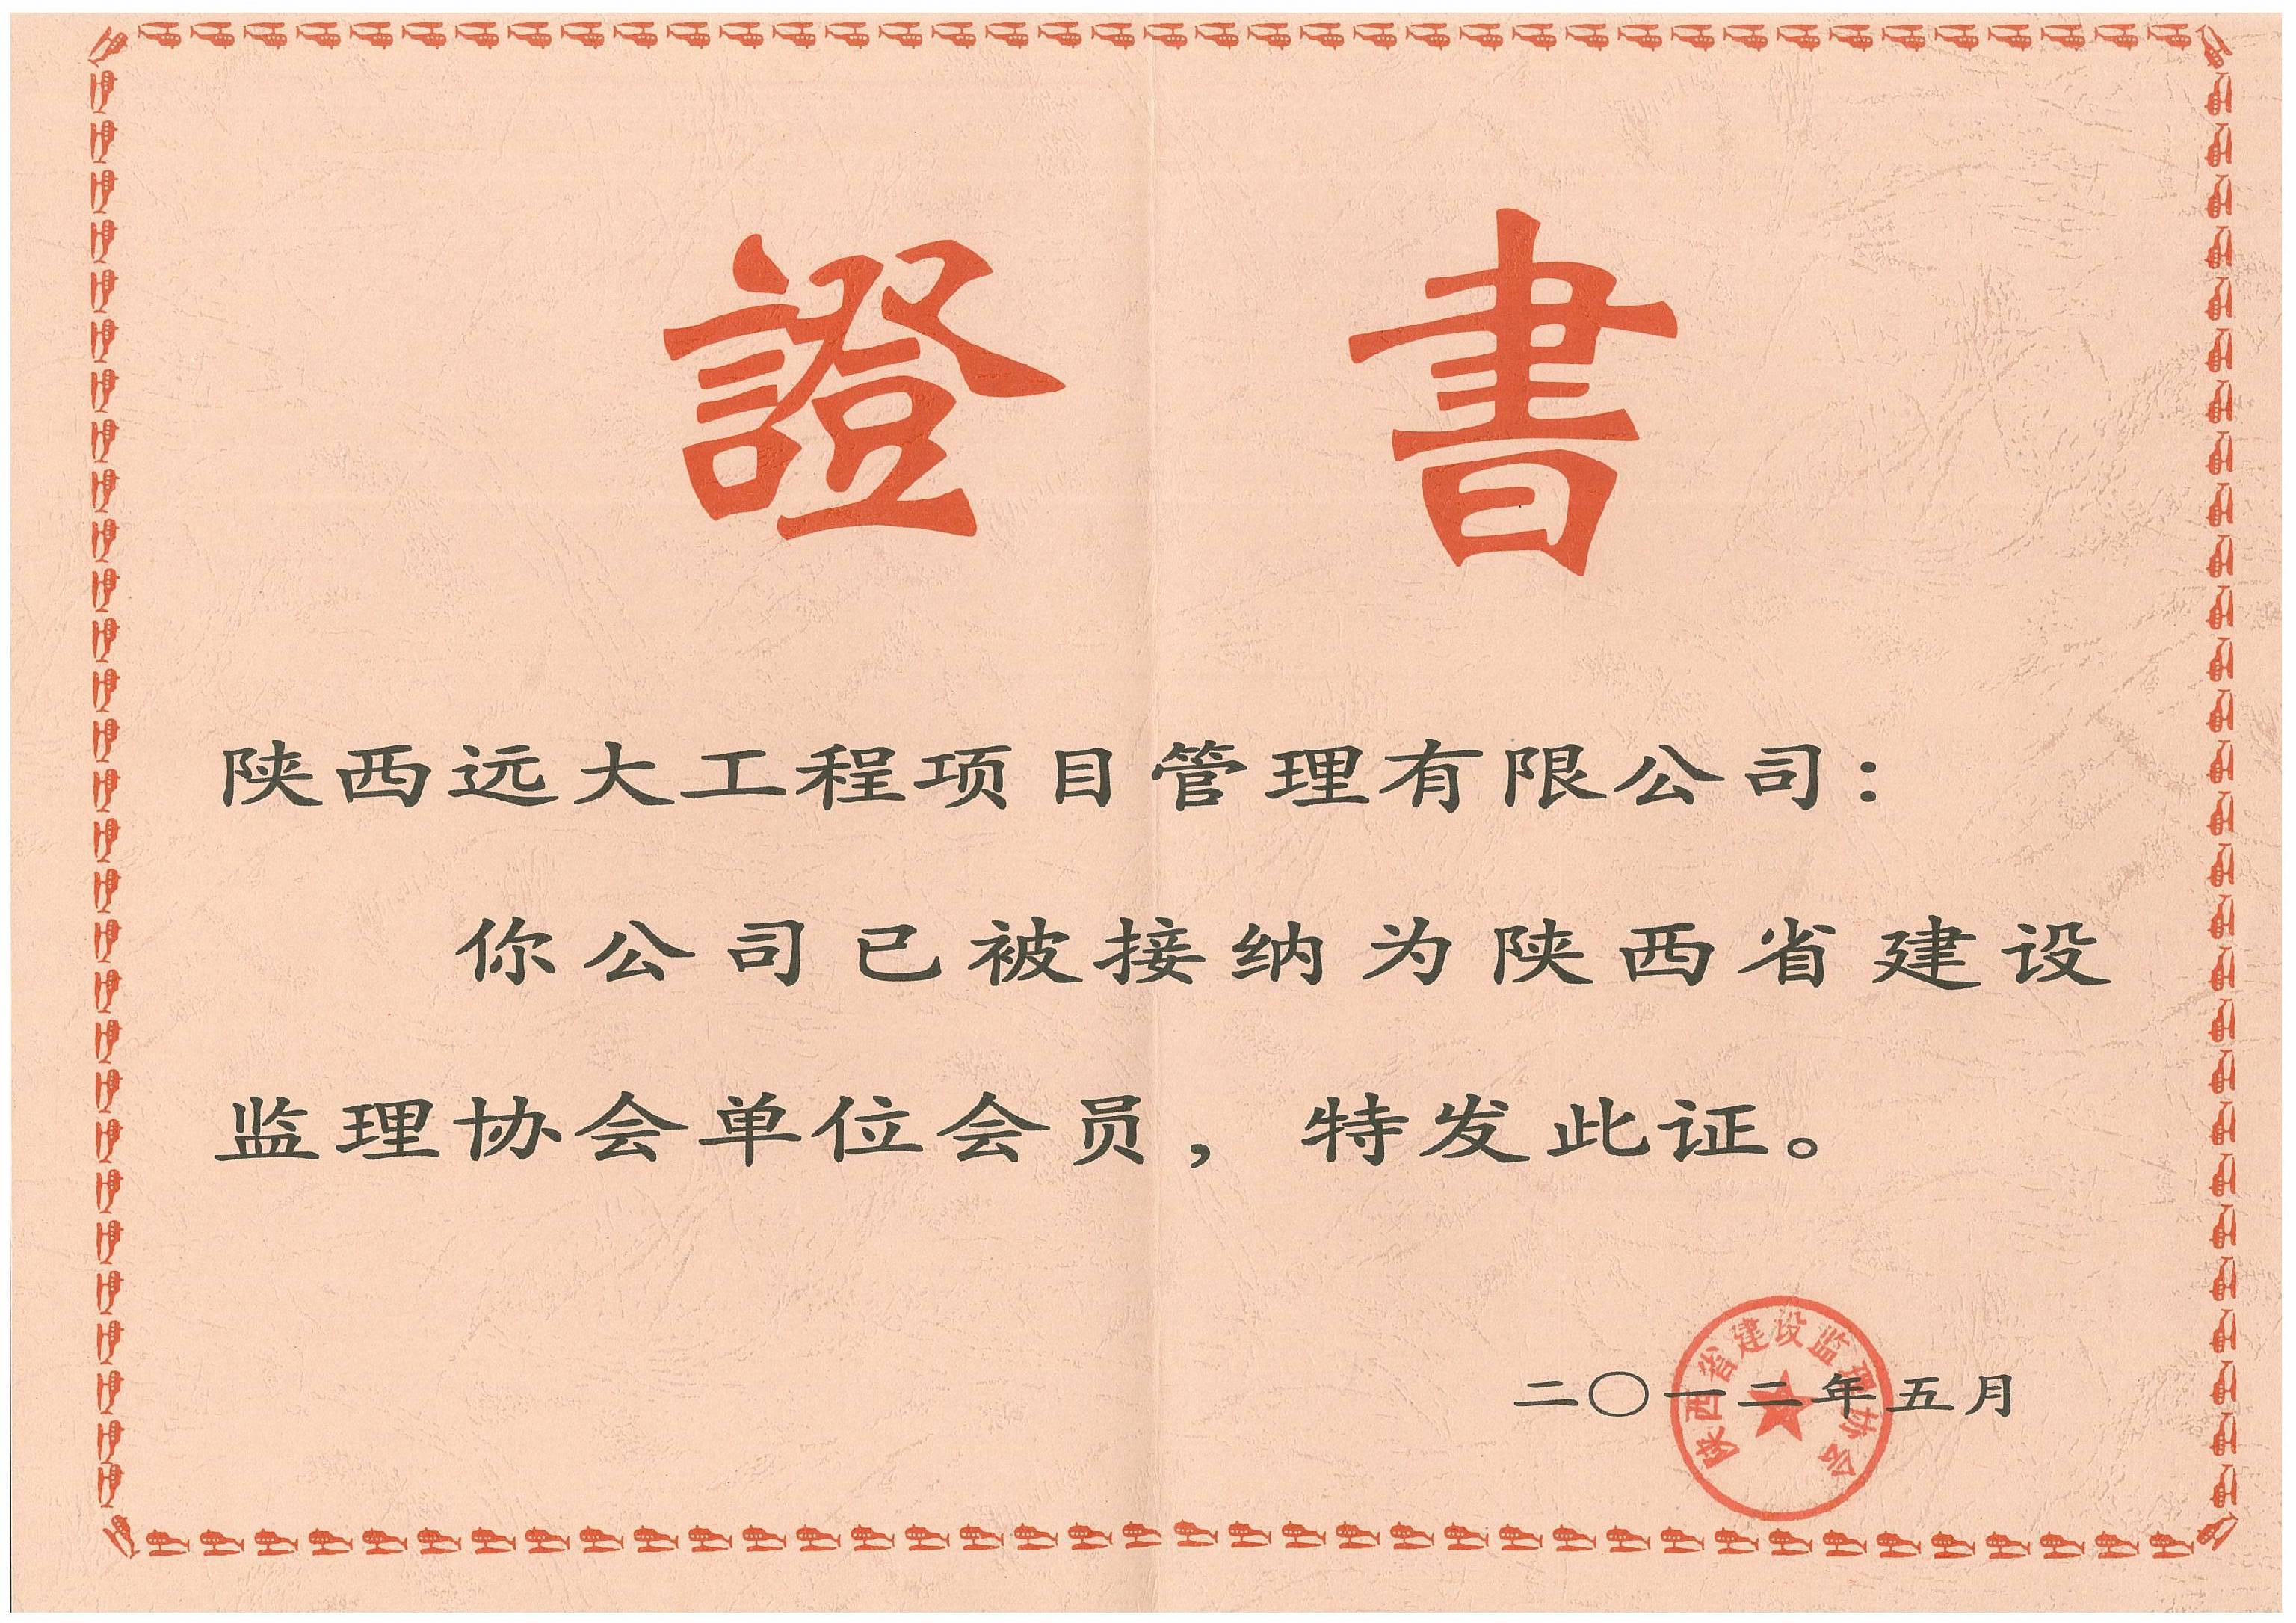 證書
陕西远大工程项目管理有限公司：
你公司已被接纳为陕西省建设
监理协会单位会员，特发此证。
二〇一二年五月
陕西省建设监理协会